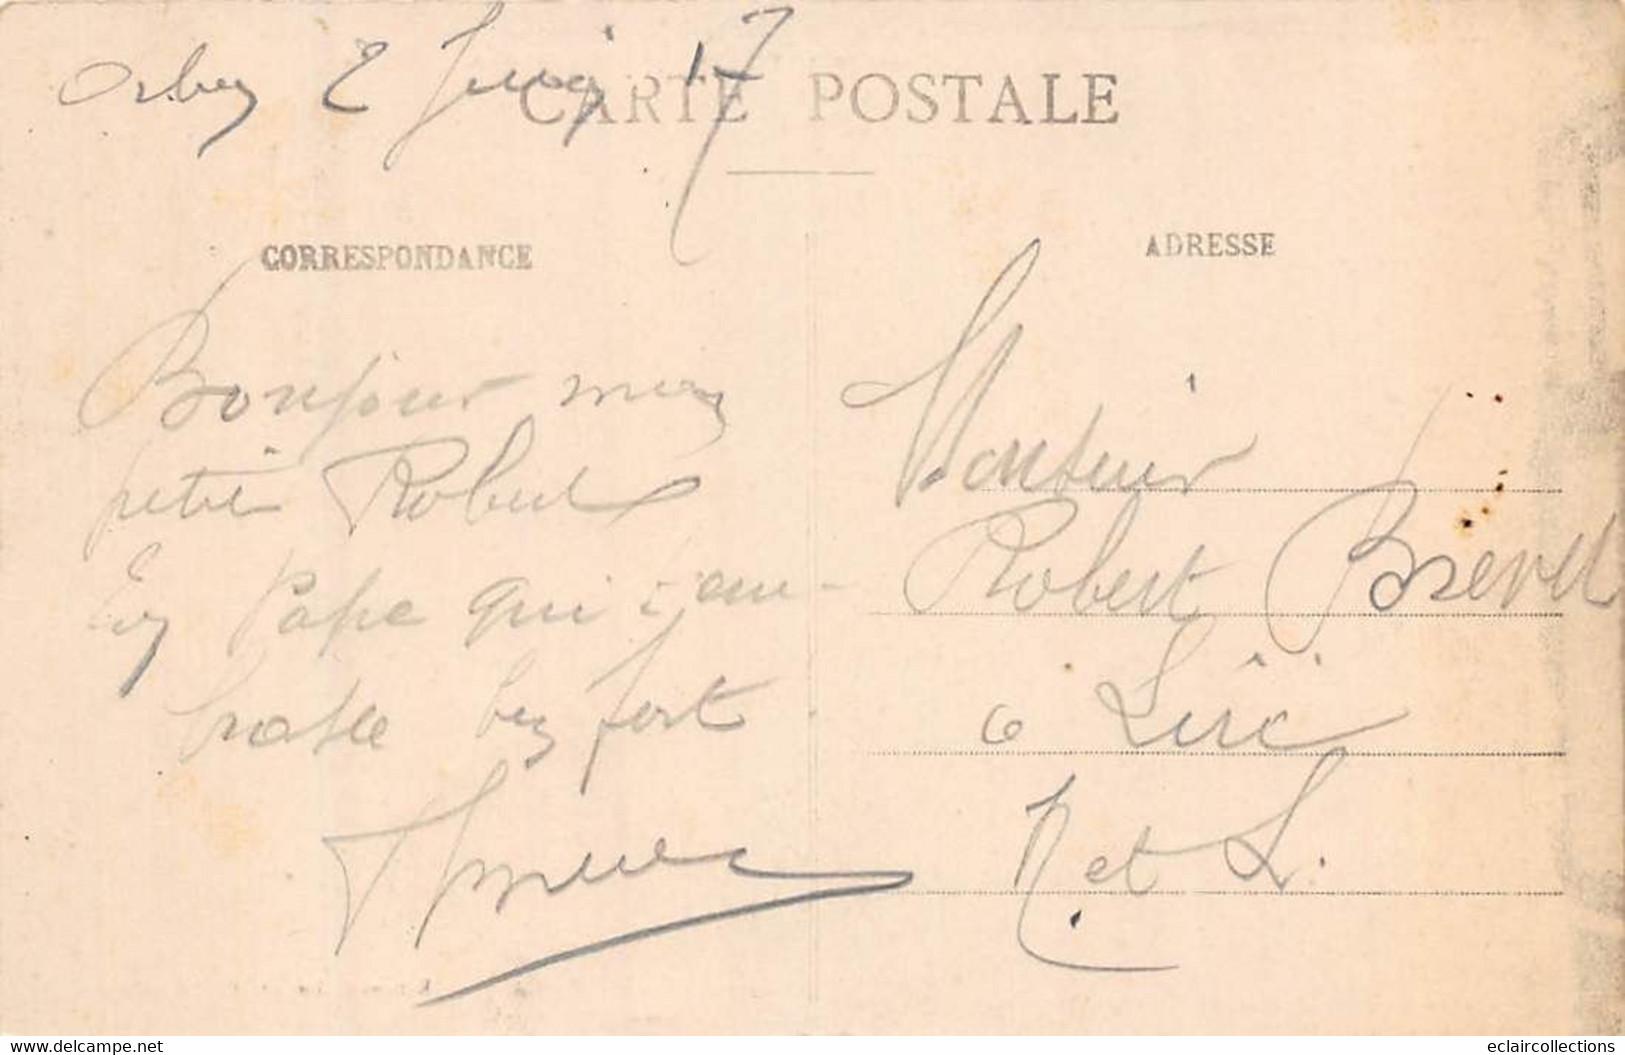 Orbey 2 Juin 17
CARTE POSTALE
CORRESPONDANCE
Bonjour mon
petit Robert
Ton Papa qui t'em-
brasse bien fort
ADRESSE
Monsieur
Robert Brevet
à Liré
M et L.
www.delcampe.net
eclaircollections